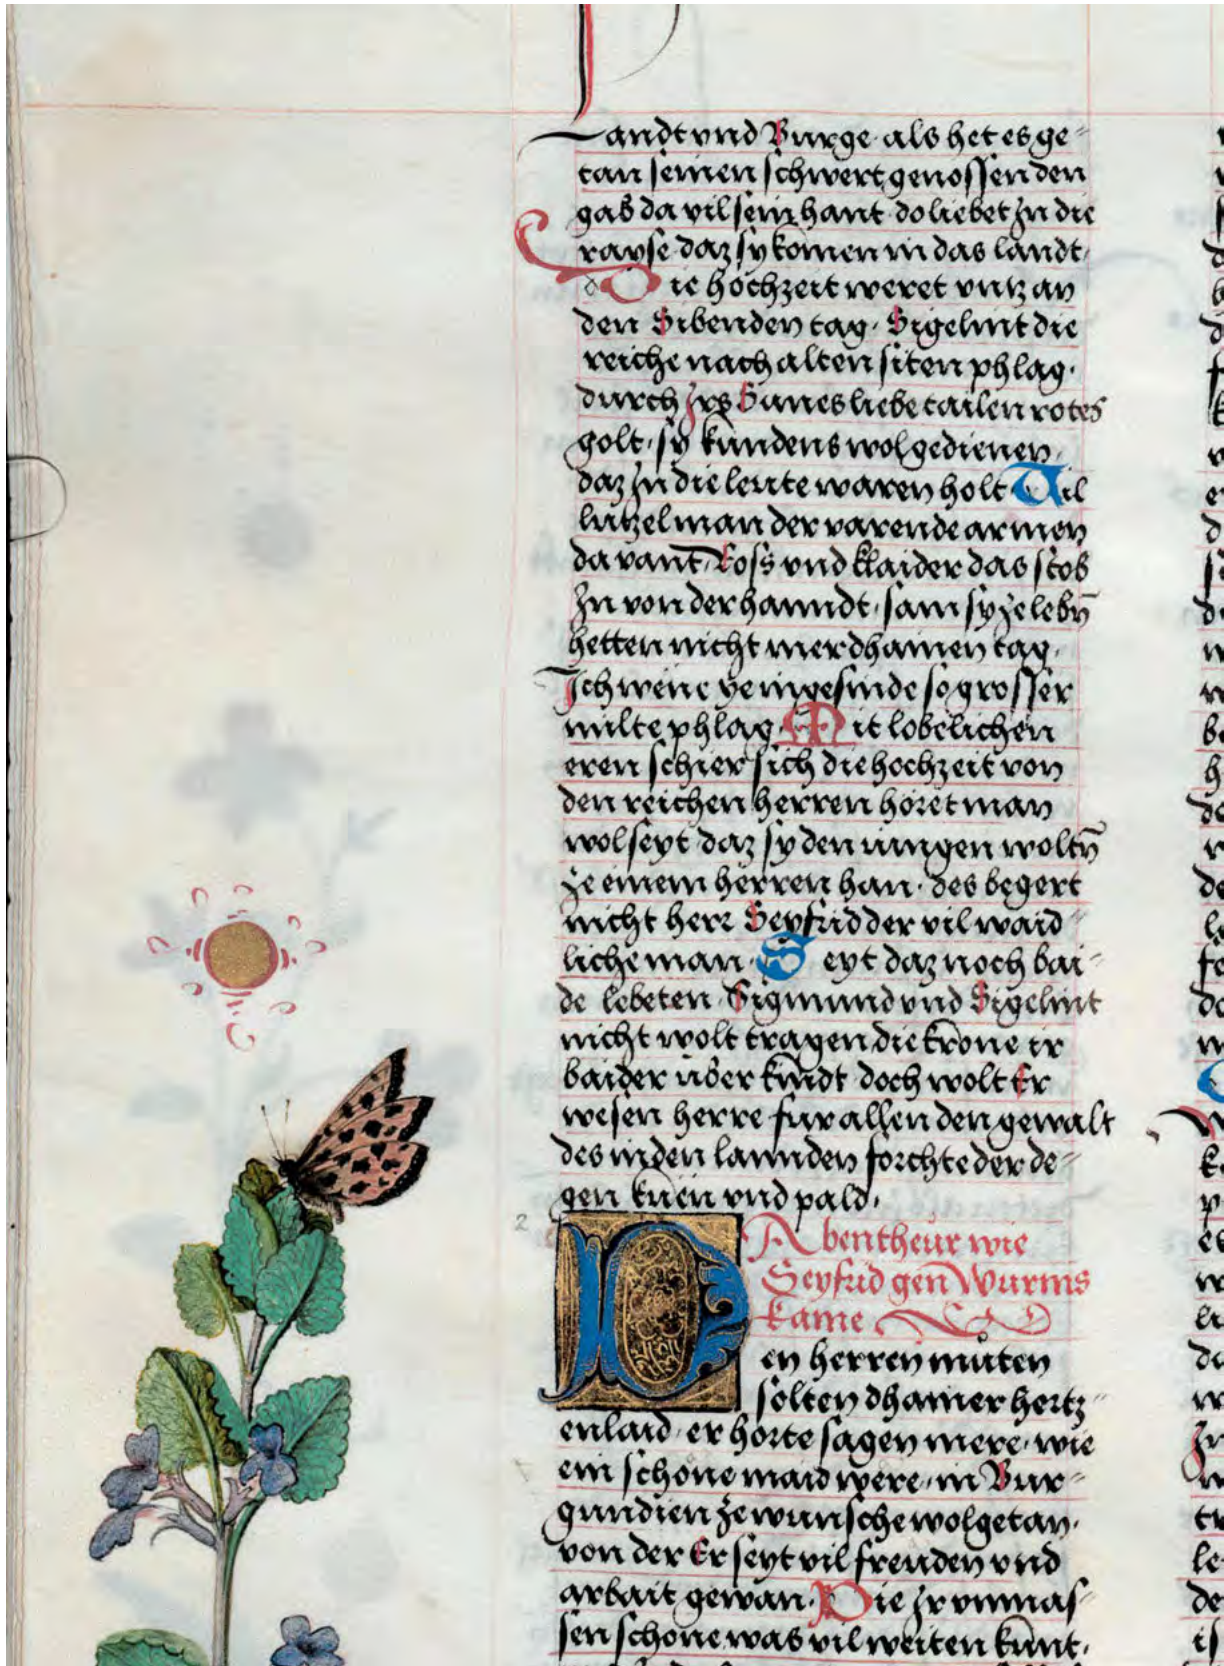 Landt vnd Burge · als het es ge=
tan seinen schwert genossen den
gab da vil sein hant · do liebet Jn die
rayse daz sy komen in das landt ·
Die hochzeit weret vntz an
den Sibenden tag · Sigelint die
reiche nach alten siten phlag ·
durch Jrs Sunes liebe tailen rotes
golt · sy kundens wol gedienen ·
daz Jn die leute waren holt · Vil
lutzel man der varende armen
da vant · Ross vnd klaider das stob
Jn von der hanndt · sam sy ze lebn̄
hetten nicht mer dhainen tag ·
Jch wene ye ingesinde so grosser
milte phlag · Mit lobelichen
eren schier sich die hochzeit von
den reichen herren höret man
wol seyt daz sy den iungen woltn̄
ze einem herren han · des begert
nicht herr Seyfrid der vil waid=
liche man · Seyt daz noch bai=
de lebeten · Sigmund vnd Sigelint
nicht wolt tragen die krone ir
baider über kindt doch wolt Er
wesen herre fur allen den gewalt
des in den lannden forchte der de=
gen küen vnd pald ·
2
Abentheur wie
Seyfrid gen Wurms
kame
Den herren muͦten
solten dhainer hertz=
enlaid · er horte sagen mere · wie
ein schone maid were · in Bur=
gundien ze wunsche wolgetan ·
von der Er seyt vil freuden vnd
arbait gewan · Die Jr vnmas=
sen schone was vil weiten kunt ·